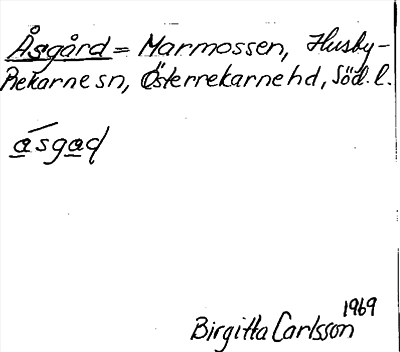 Åsgård = Marmossen, Husby-
Rekarne sn, Österrekarne hd, Söd. l.
ásgad
1969
Birgitta Carlsson